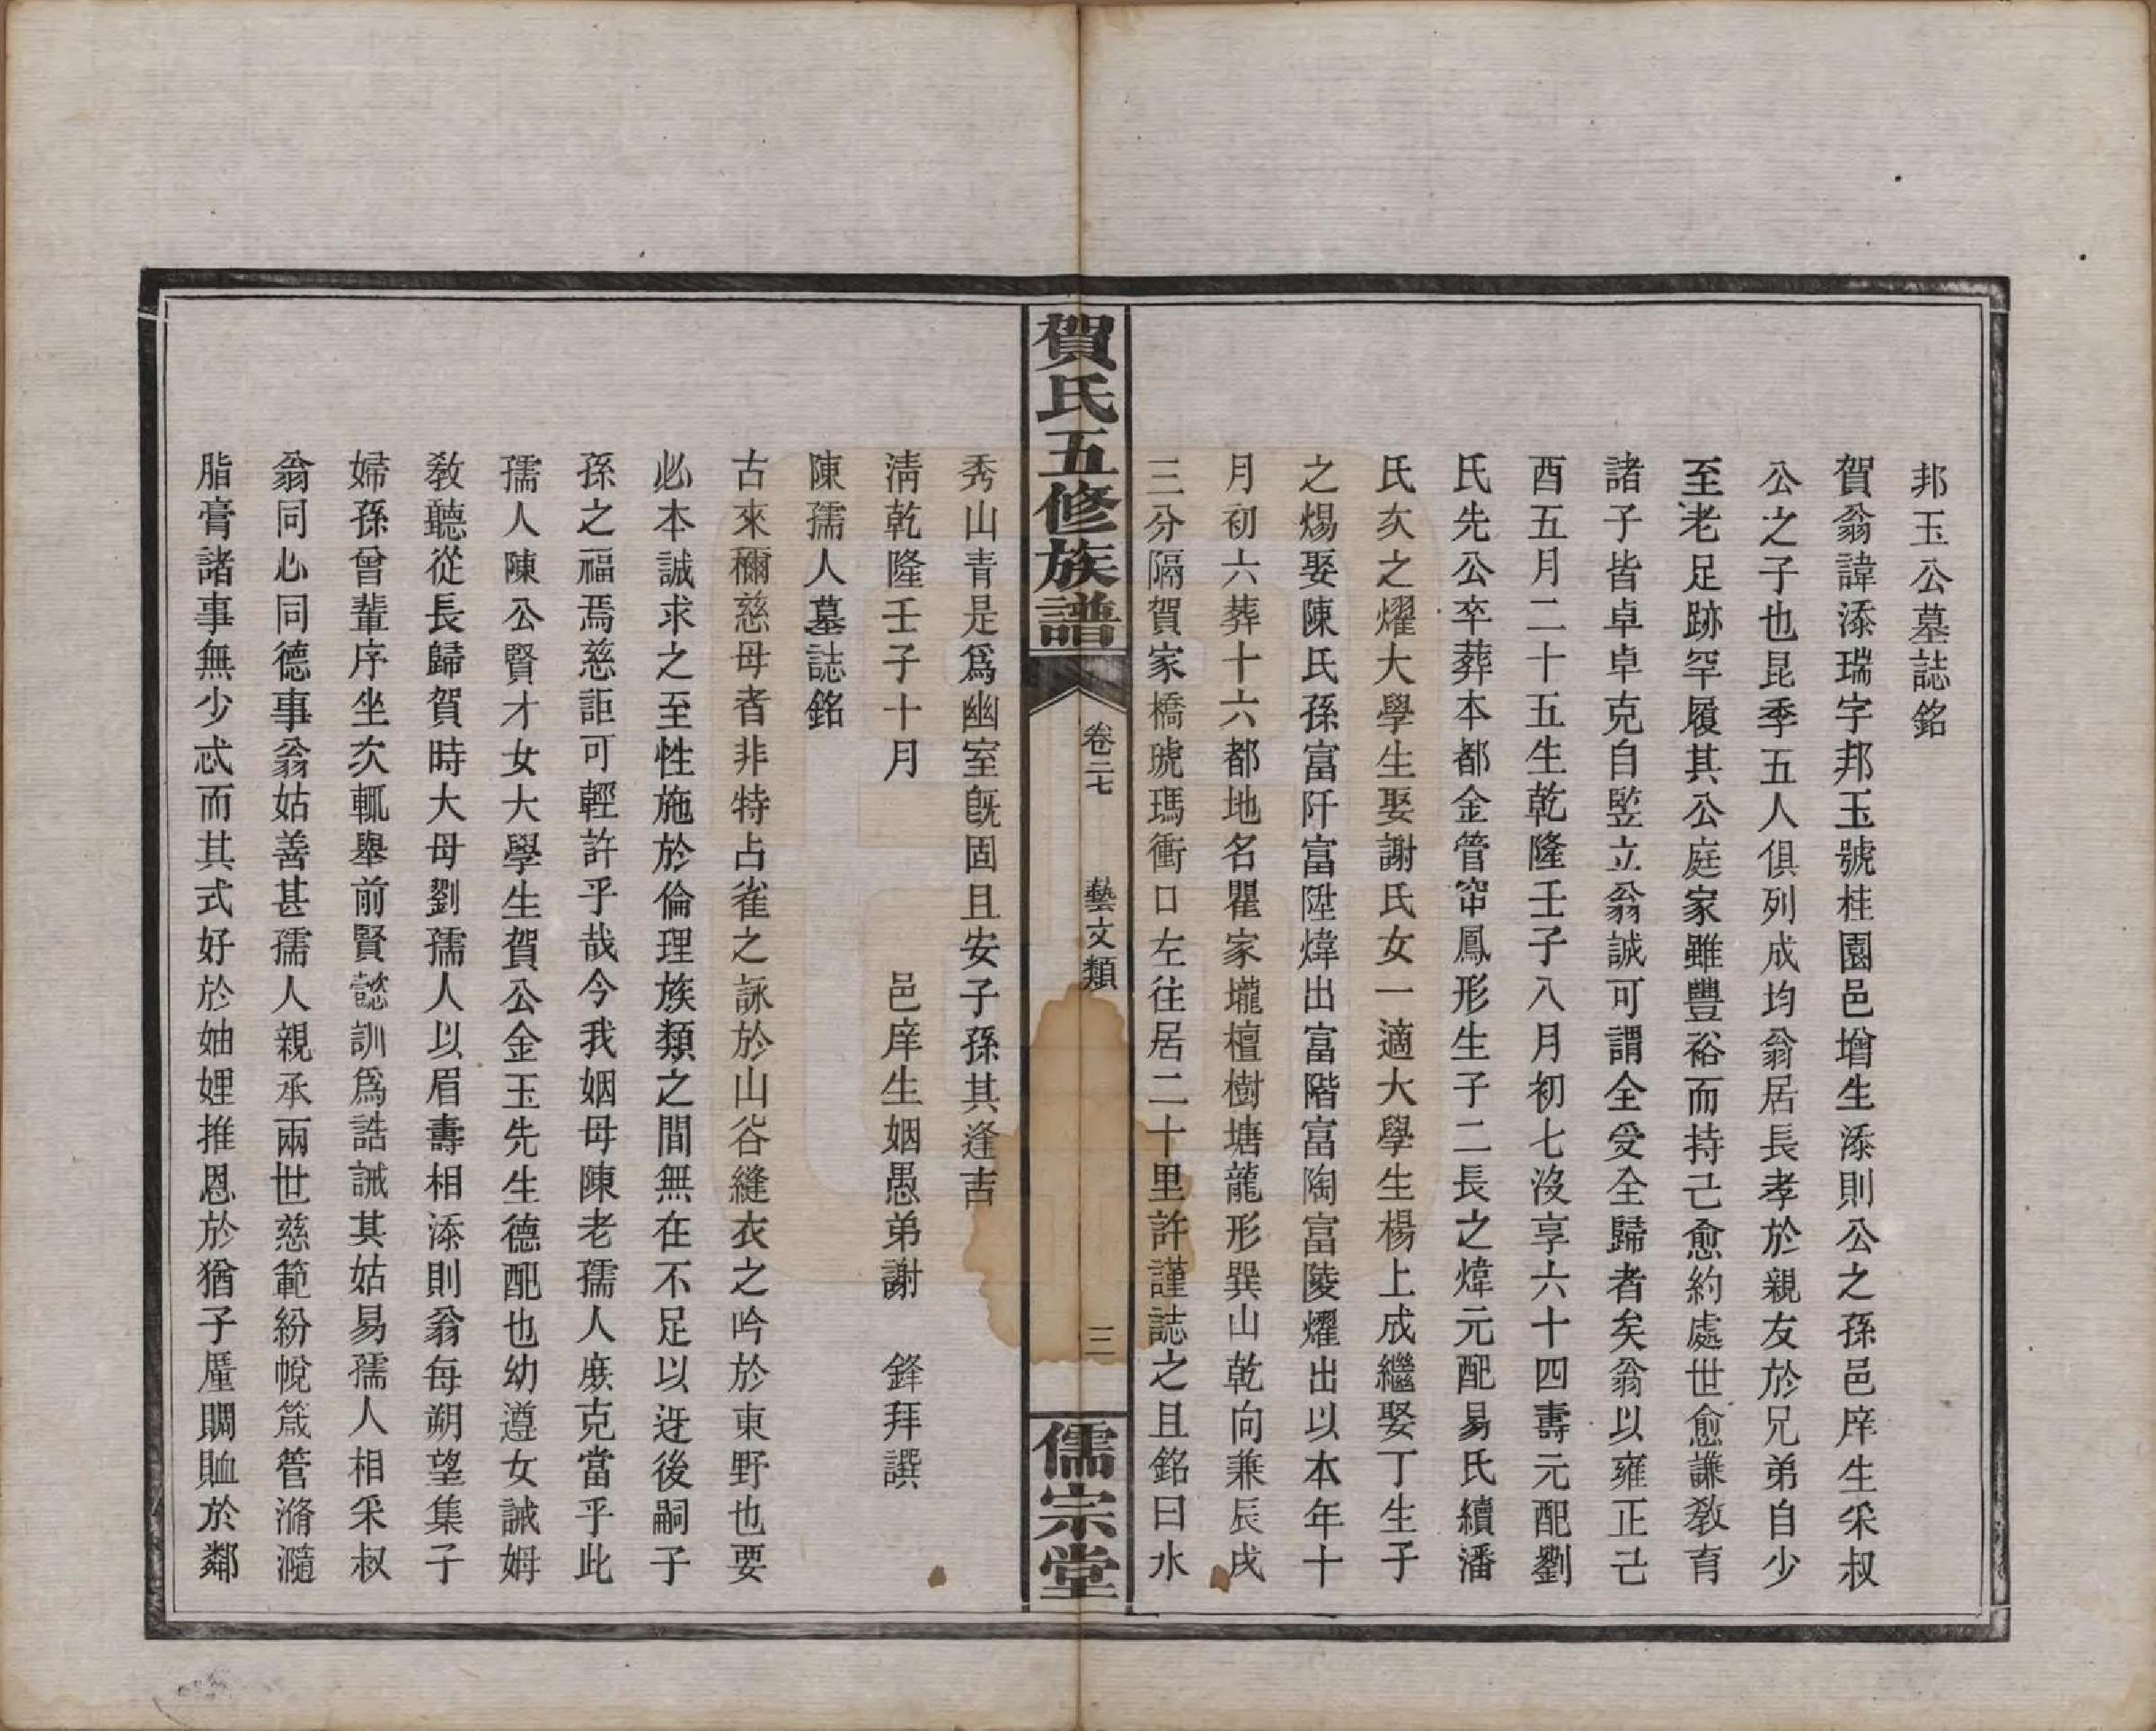 邦玉公墓誌銘
賀翁諱添瑞字邦玉號桂園邑增生添則公之孫邑庠生采叔
公之子也昆季五人俱列成均翁居長孝於親友於兄弟自少
至老足跡罕履其公庭家雖豐裕而持己愈約處世愈謙敎育
諸子皆卓卓克自竪立翁誠可謂全受全歸者矣翁以雍正己
酉五月二十五生乾隆壬子八月初七沒享六十四壽元配劉
氏先公卒葬本都金管帘鳳形生子二長之煒元配易氏續潘
氏次之燿大學生娶謝氏女一適大學生楊上成繼娶丁生子
之煬娶陳氏孫富阡富陞煒出富階富陶富陵燿出以本年十
月初六葬十六都地名瞿家壠檀樹塘龍形巽山乾向兼辰戌
三分隔賀家橋琥瑪衝口左往居二十里許謹誌之且銘曰水
賀氏五修族譜
卷二七
藝文類
三
儒宗堂
秀山青是爲幽室旣固且安子孫其逢吉
淸乾隆壬子十月　邑庠生姻愚弟謝　鋒拜譔
陳孺人墓誌銘
古來稱慈母者非特占雀之詠於山谷縫衣之吟於東野也要
必本誠求之至性施於倫理族類之間無在不足以迓後嗣子
孫之福焉慈詎可輕許乎哉今我姻母陳老孺人庶克當乎此
孺人陳公賢才女大學生賀公金玉先生德配也幼遵女誡姆
敎聽從長歸賀時大母劉孺人以眉壽相添則翁每朔望集子
婦孫曾輩序坐次輒舉前賢懿訓爲誥誡其姑易孺人相采叔
翁同心同德事翁姑善甚孺人親承兩世慈範紛帨箴管滫瀡
脂膏諸事無少忒而其式好於妯娌推恩於猶子賙賉於鄰